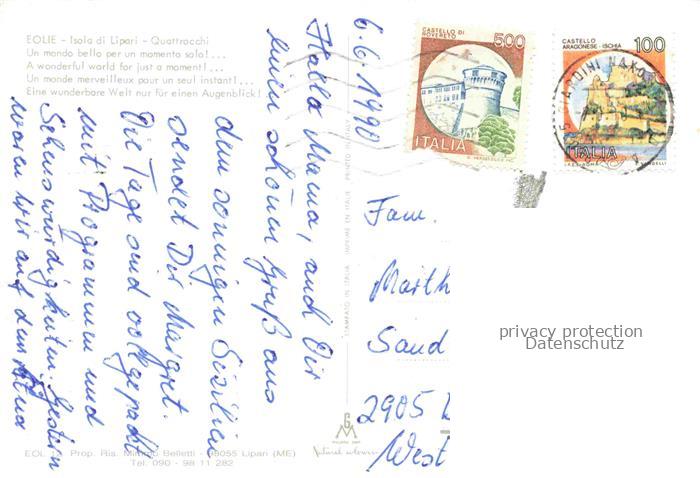 EOLIE - Isola di Lipari - Quattrocchi
Un mondo bello per un momento solo!...
A wonderful world for just a moment!...
Un monde merveilleux pour un seul instant!...
Eine wunderbare Welt nur für einen Augenblick!
6.6.1990
Hallo Mama, auch Dir
einen schönen Gruß aus
dem sonnigen Sizilien
sendet Dir Margret.
Die Tage sind vollgepackt
mit Programmen und
Sehenswürdigkeiten. Gestern
waren wir auf dem Ätna
STAMPATO IN ITALIA IMPRIME EN ITALIE PRINTED IN ITALY
CASTELLO DI
ROVERETO
500
ITALIA
CASTELLO
ARAGONESE - ISCHIA
100
ITALIA
GIARDINI NAXOS
Fam.
Marth
Sand
2905
West
privacy protection
Datenschutz
EOL Prop. Ris. Mimmo Belletti - 98055 Lipari (ME)
Tel. 090 - 98 11 282